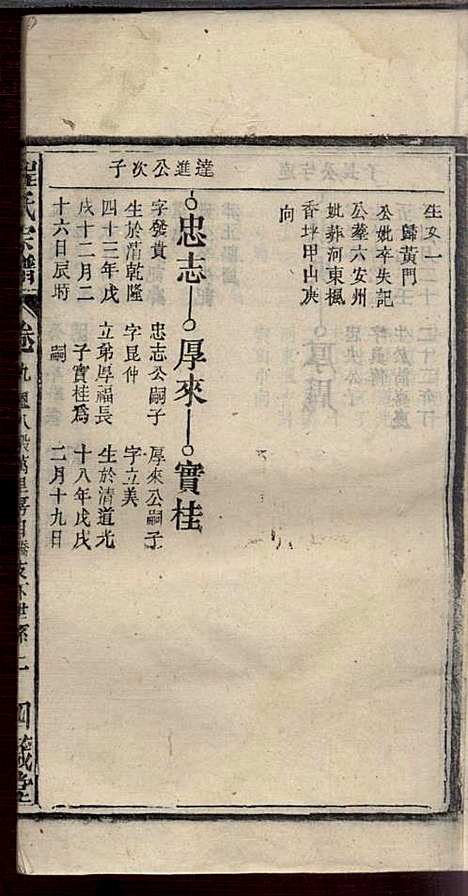 生女一
歸黃門
公妣卒失記
公葬六安州
妣葬河東楓
香坪甲山庚
向
達進公次子
忠志
厚來
實桂
字發貴
生於清乾隆
四十三年戊
戌十二月二
十六日辰時
忠志公嗣子
字昆仲
立弟厚福長
子實桂為
嗣
厚來公嗣子
字立美
生於清道光
十八年戊戌
二月十九日
程氏宗譜
卷
四箴堂